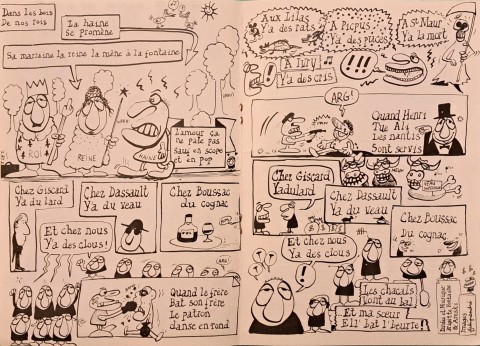 Dans les bois
De nos rois
La haine
Se promène
Sa marraine la reine la mène à la fontaine
ROI
REINE
HAINE
L'amour ça
ne paie pas
Sauf en scope
et en pop
Chez Giscard
Ya du lard
Chez Dassault
Ya du veau
Chez Boussac
Du cognac
Et chez nous
Ya des clous!
Quand le frère
Bat son frère
Le patron
danse en rond
Aux Lilas
Ya des rats
A Picpus
Ya des puces
A St Maur
Ya la mort
A Ivry
Ya des cris
!!!
ARG!
Quand Henri
Tue Ali
Les nantis
Sont servis
Chez Giscard
Yadulard
Chez Dassault
Ya du veau
Chez Boussac
Du cognac
Et chez nous
Ya des clous
Les chacals
Vont au bal
Et ma sœur
Ell' bat l'beurre!
Paroles et Musique